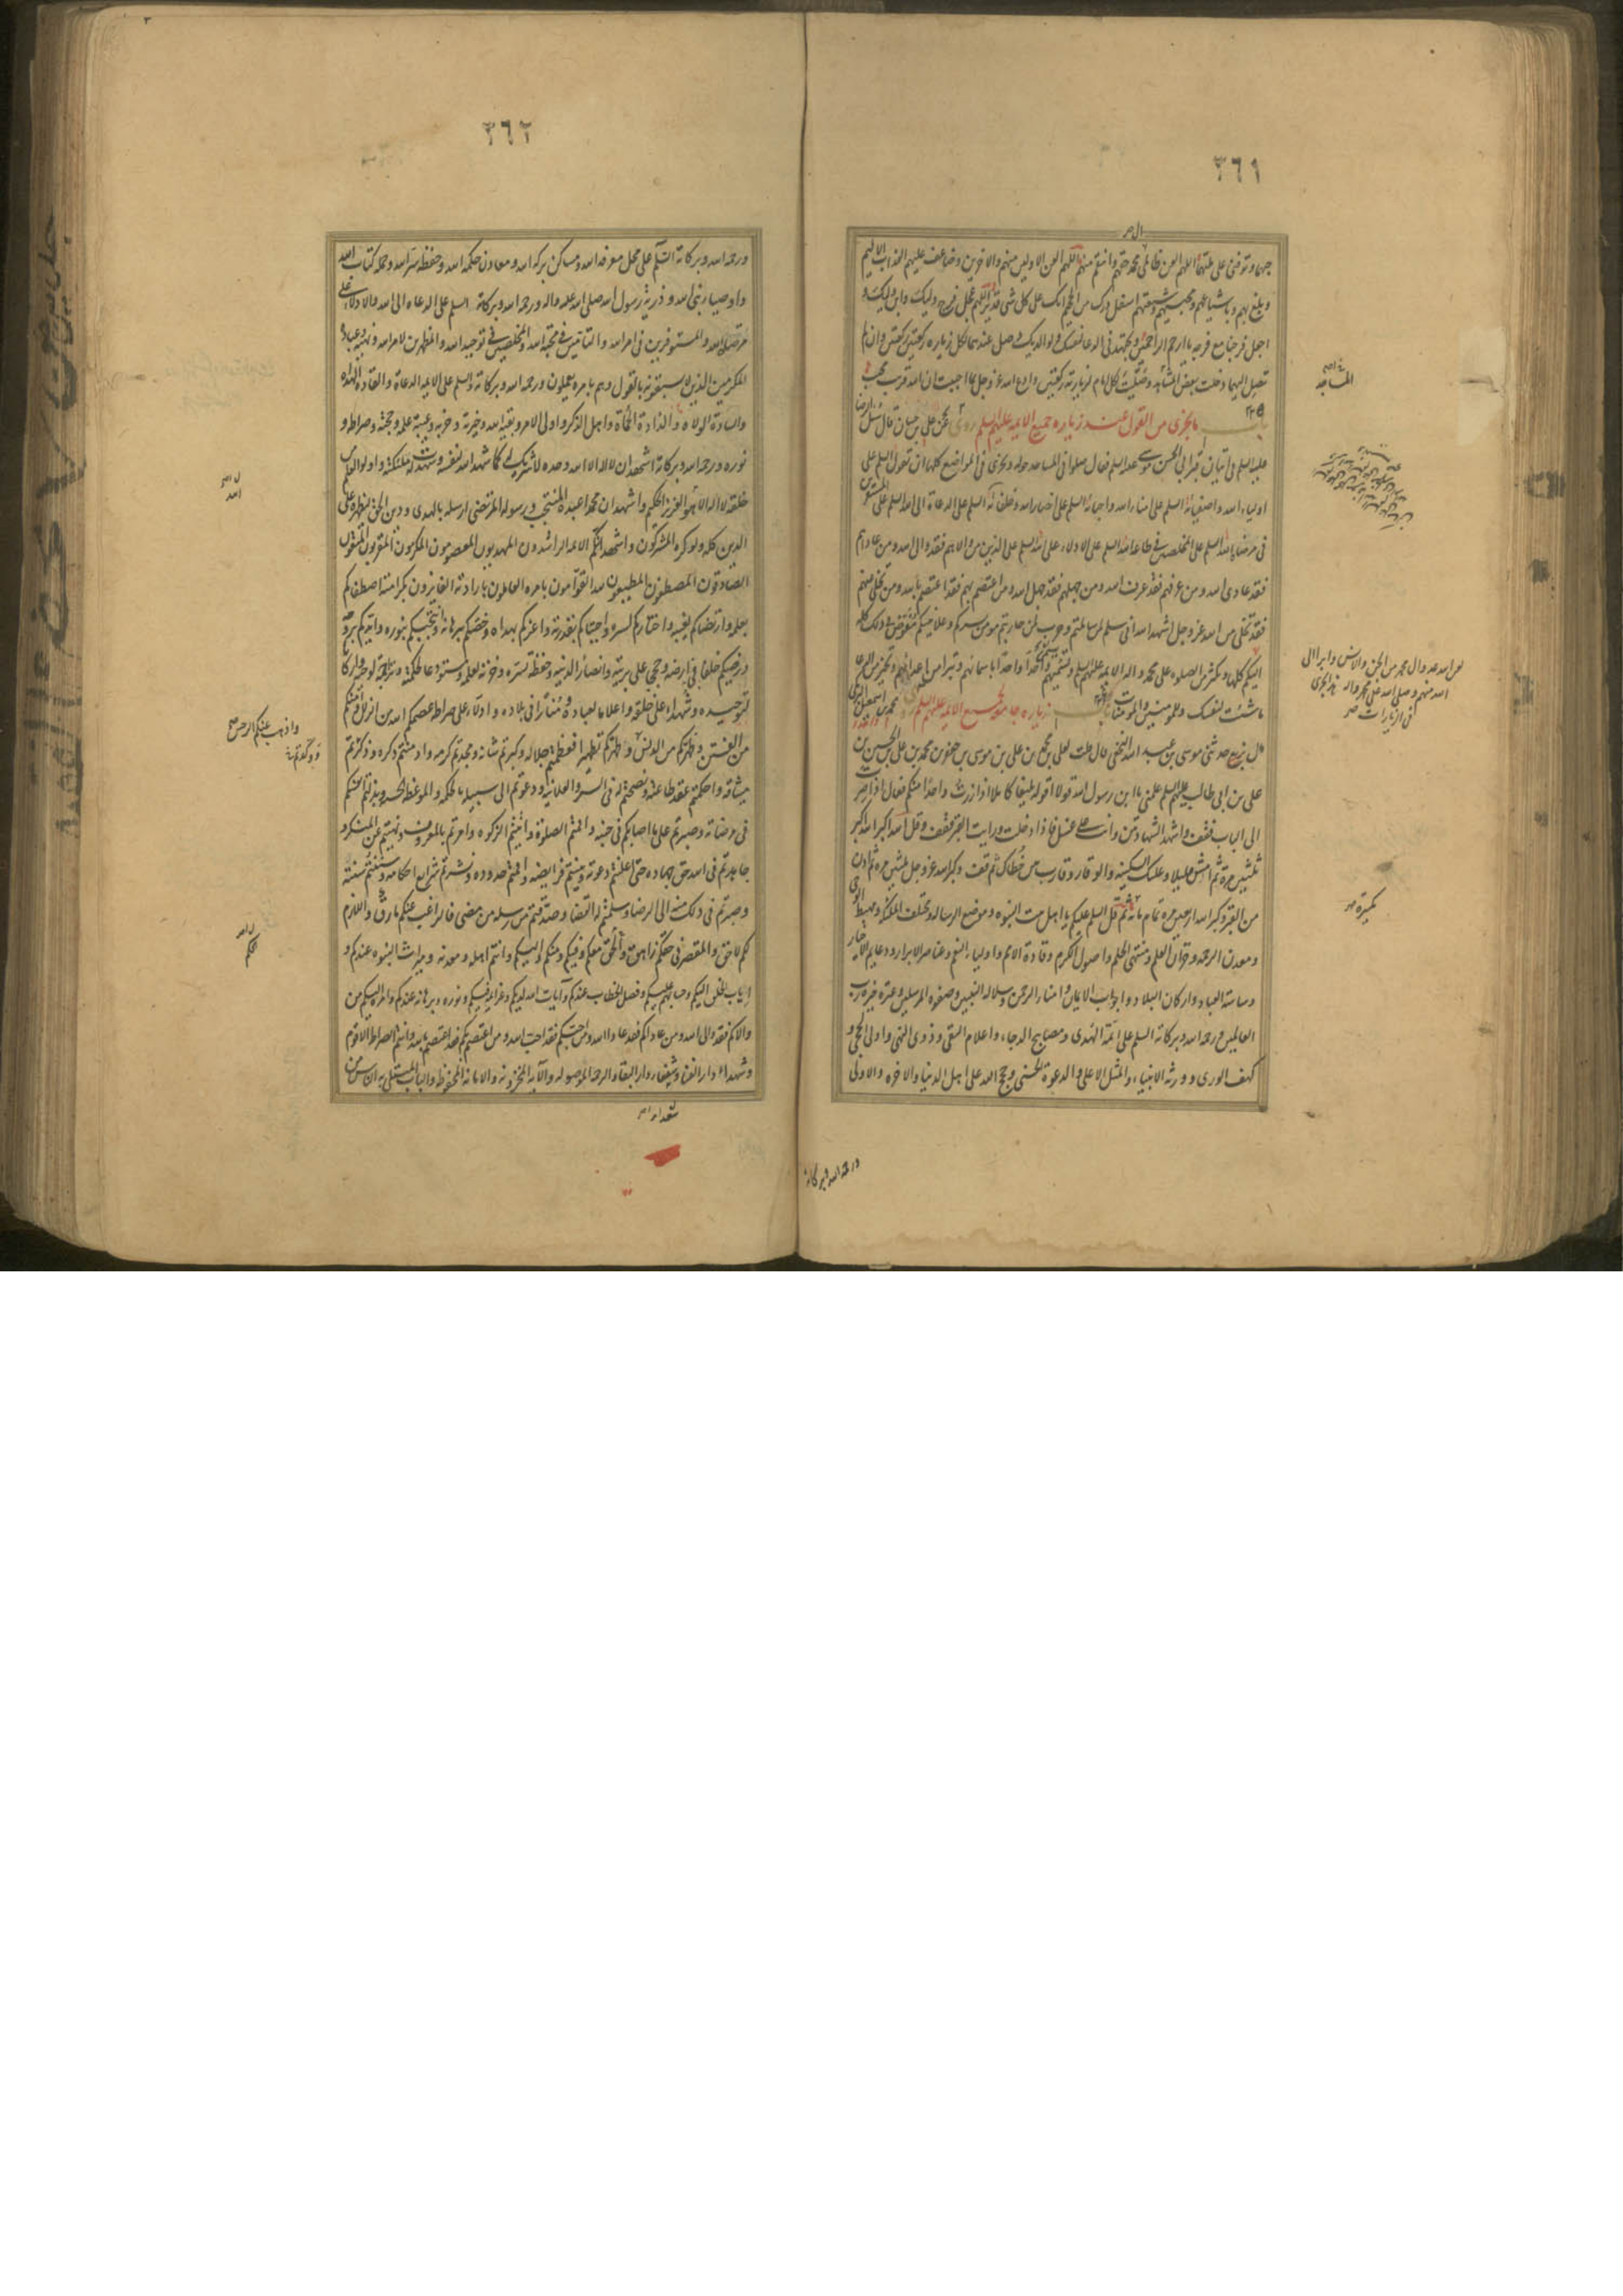 ٣٦١
حبهما وتوفنى على ملتهما اللهم العن ظالمى آل محمد حقهم وانتقم منهم اللهم العن الاولين منهم والاخرين وضاعف عليهم العذاب الاليم
وبلغ بهم وباشياعهم ومحبيهم وشيعتهم اسفل درك من الجحيم انك على كل شى قدير اللهم عجل فرج وليك وابن وليك و
اجعل فرجنا مع فرجه يا ارحم الراحمين وتجتهد فى الدعا لنفسك ولوالديك وصل عندهما لكل زيارة ركعتين ركعتين وان لم
تصل اليهما دخلت بعض المساجد وصليت لكل امام لزيارته ركعتين وادع الله عز وجل بما احببت ان الله قريب مجيب
باب ما يجزى من القول عند زياره جميع الايمه عليهم السلم روى عن على بن حسان قال سئل الرضا
عليه السلم فى اتيان قبر ابى الحسن موسى عليه السلم فقال صلوا فى المساجد حوله ويجزى فى المواضع كلها ان تقول السلم على
اولياء الله واصفيائه السلم على امناء الله واحبائه السلم على انصار الله وخلفائه السلم على الدعاة الى الله السلم على المستقرين
فى مرضات الله السلم على المخلصين فى طاعة الله السلم على الادلاء على الله السلم على الذين من والاهم فقد والى الله ومن عاداهم
فقد عادى الله ومن عرفهم فقد عرف الله ومن جهلهم فقد جهل الله ومن اعتصم بهم فقد اعتصم بالله ومن تخلى منهم
فقد تخلى من الله عز وجل اشهد الله انى سلم لمن سالمتم وحرب لمن حاربتم مومن بسركم وعلانيتكم مفوض فى ذلك كله
اليكم كلها وتكثر من الصلوه على محمد واله الايمه عليهم السلم وتسميهم واحدا واحدا باسمائهم وتبرا من اعدائهم وتخير من الدعا
ما شئت لنفسك وللمومنين والمومنات باب زياره جامعه لجميع الايمه عليهم السلم روى محمد بن اسمعيل البرمكى
قال حدثنى موسى بن عبد الله النخعى قال قلت لعلى بن محمد بن على بن موسى بن جعفر بن محمد بن على بن الحسين بن
على بن ابى طالب عليهم السلم علمنى يا ابن رسول الله قولا اقوله بليغا كاملا اذا زرت واحدا منكم فقال اذا صرت
الى الباب فقف واشهد الشهادتين وانت على غسل فاذا دخلت ورايت القبر فقف وقل الله اكبر الله اكبر
ثلثين مرة ثم امش قليلا وعليك السكينه والوقار وقارب بين خطاك ثم قف وكبر الله عز وجل ثلثين مره ثم ادن
من القبر وكبر الله اربعين مره تمام مائة ثم قل السلم عليكم يا اهل بيت النبوه وموضع الرساله ومختلف الملئكه ومهبط الوحى
ومعدن الرحمه وخزان العلم ومنتهى الحلم واصول الكرم وقادة الامم واولياء النعم وعناصر الابرار ودعايم الاخيار
وساسة العباد واركان البلاد وابواب الايمان وامناء الرحمن وسلاله النبيين وصفوه المرسلين وعترة خيره رب
العالمين ورحمه الله وبركاته السلم على ائمة الهدى ومصابيح الدجاء واعلام التقى وذوى النهى واولى الحجى و
كهف الورى وورثه الانبياء والمثل الاعلى والدعوة الحسنى وحجج الله على اهل الدنيا والاخره والاولى
المساجد
لعن اسد عدو ال محمد من الجن والانس وابرا الى
الله منهم وصلى الله على محمد واله هذا يجزى
فى الزيارات
تكبيرة
ورحمة الله وبركاته
٣٦٢
ورحمه الله وبركاته السلم على محال معرفه الله ومساكن بركه الله ومعادن حكمه الله وحفظه سر الله وحمله كتاب الله
واوصياء نبى الله وذرية رسول الله صلى الله عليه واله ورحمه الله وبركاته السلم على الدعاه الى الله والادلاء على
مرضات الله والمستوفرين فى امر الله والتامين فى محبة الله والمخلصين فى توحيد الله والمظهرين لامر الله ونهيه وعباده
المكرمين الذين لا يسبقونه بالقول وهم بامره يعملون ورحمه الله وبركاته السلم على الايمه الدعاة والقادة الهداه
والسادة الولاه والذادة الحماة واهل الذكر واولى الامر وبقيه الله وخيرته وحزبه وعيبة علمه وحجته وصراطه و
نوره ورحمه الله وبركاته اشهد ان لا اله الا الله وحده لا شريك له كما شهد الله لنفسه وشهدت له ملئكته واولو العلم من
خلقه لا اله الا هو العزيز الحكيم واشهد ان محمدا عبده المنتجب ورسوله المرتضى ارسله بالهدى ودين الحق ليظهره على
الدين كله ولو كره المشركون واشهد انكم الايمه الراشدون المهديون المعصومون المكرمون المقربون المتقون
الصادقون المصطفون المطيعون لله القوامون بامره العاملون بارادته الفايزون بكرامته اصطفاكم
بعلمه وارتضاكم لغيبه واختاركم لسره واجتباكم بقدرته واعزكم بهداه وخصكم ببرهانه وانتجبكم بنوره وايدكم بروحه
ورضيكم خلفاء فى ارضه وحججا على بريته وانصارا لدينه وحفظة لسره وخزنة لعلمه ومستودعا لحكمته وتراجمة لوحيه واركانا
لتوحيده وشهداء على خلقه واعلاما لعباده ومنارا فى بلاده وادلاء على صراطه عصمكم الله من الزلل وآمنكم
من الفتن وطهركم من الدنس وطهركم تطهيرا فعظمتم جلاله وكبرتم شانه ومجدتم كرمه وادمنتم ذكره وذكرتم
ميثاقه واحكمتم عقد طاعته ونصحتم له فى السر والعلانيه ودعوتم الى سبيله بالحكمه والموعظه الحسنه وبذلتم انفسكم
فى مرضاته وصبرتم على ما اصابكم فى جنبه واقمتم الصلوة واتيتم الزكوه وامرتم بالمعروف ونهيتم عن المنكر و
جاهدتم فى الله حق جهاده حتى اعلنتم دعوته وبينتم فرايضه واقمتم حدوده ونشرتم شرايع احكامه وسننتم سنته
وصرتم فى ذلك منه الى الرضا وسلمتم له القضا وصدقتم من رسله من مضى فالراغب عنكم مارق واللازم
لكم لاحق والمقصر فى حقكم زاهق والحق معكم وفيكم ومنكم واليكم وانتم اهله ومعدنه وميراث النبوه عندكم و
اياب الخلق اليكم وحسابهم عليكم وفصل الخطاب عندكم وآيات الله لديكم وعزايمه فيكم ونوره وبرهانه عندكم وامره اليكم من
والاكم فقد والى الله ومن عاداكم فقد عادا الله ومن احبكم فقد احب الله ومن اعتصم بكم فقد اعتصم بالله وانتم الصراط الاقوم
وشهداء دار الفنا وشفعاء دار البقا والرحمه الموصوله والآيه المخزونه والامانه المحفوظه والباب المبتلى به الناس من
واذهب عنكم الرجس